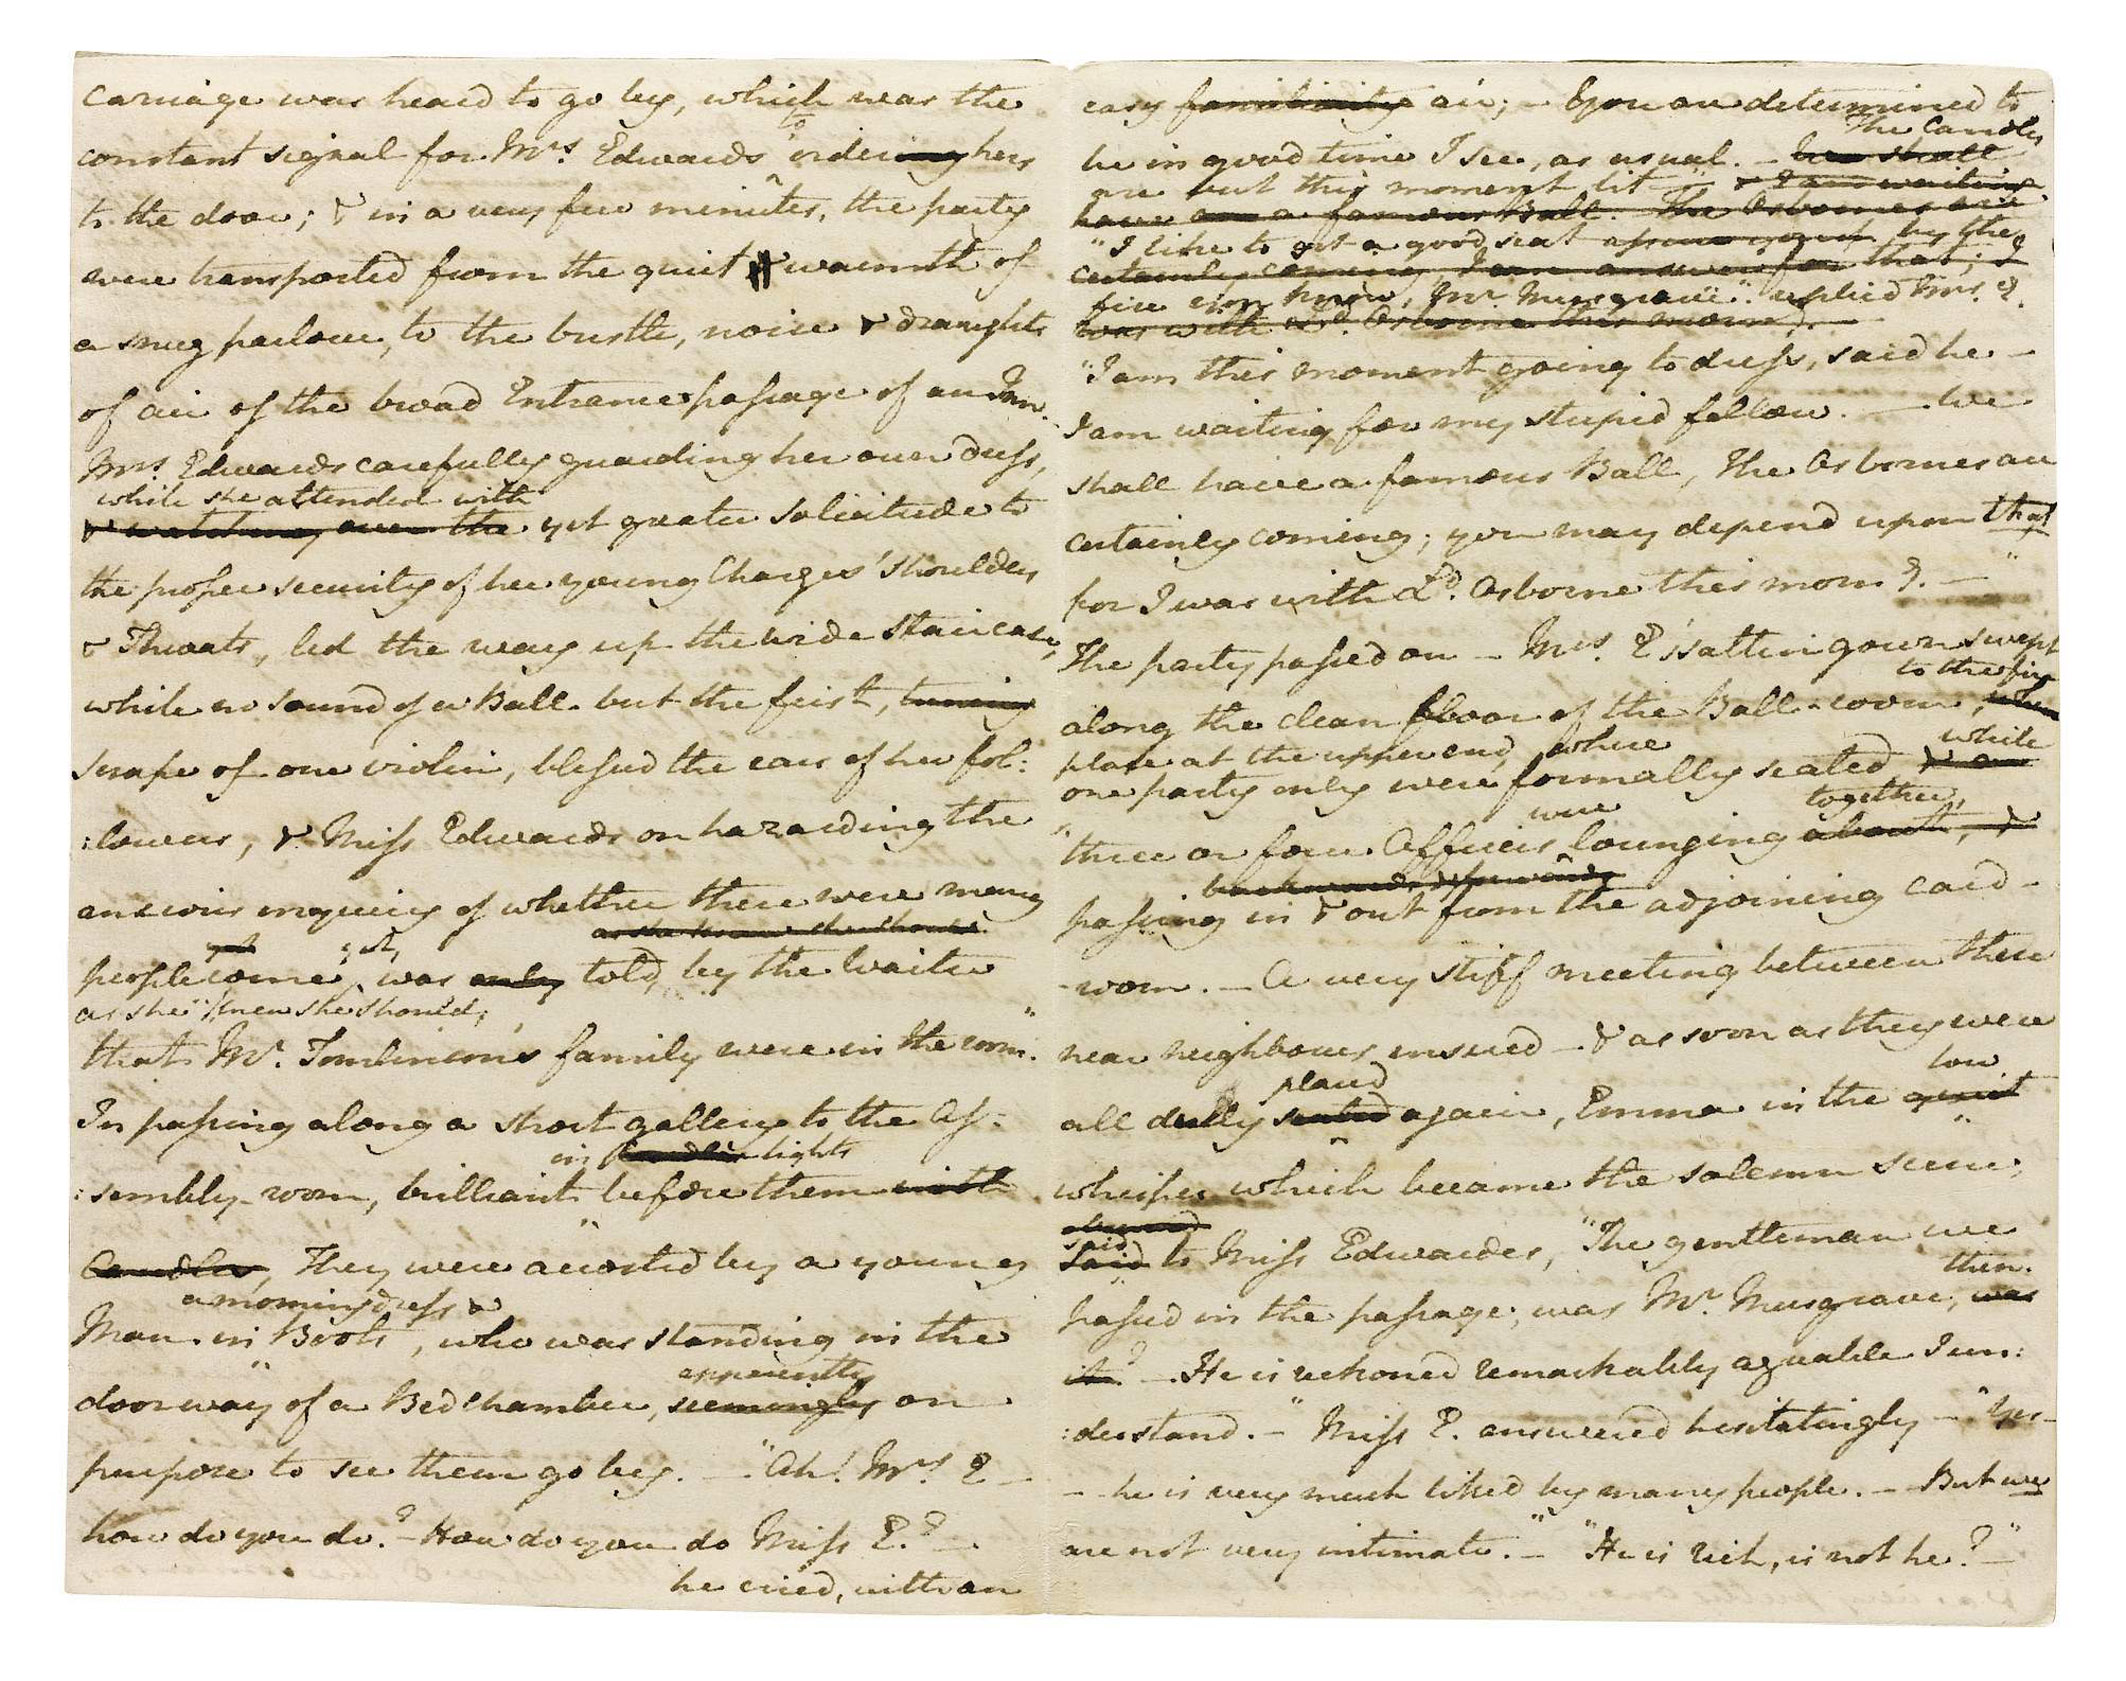 carriage was heard to go by, which was the
to
constant signal for Mrs. Edwards ordering hers
to the door; & in a very few minutes, the party
were transported from the quiet & warmth of
a snug parlour, to the bustle, noise & draughts
of air of the broad Entrance passage of an Inn.
Mrs. Edwards carefully guarding her own dress,
while she attended with
& watching over the yet greater solicitude to
the proper security of her young Charges' Shoulders
& Throats, led the way up the wide Staircase,
while no sound of a Ball but the first, tuning
scrape of one violin, blessed the ears of her fol:
:lowers, & Miss Edwards on hazarding the
anxious enquiry of whether there were many
as she knew she should
yet yet,
people come was only told by the Waiter
as she knew she should,
that "Mr. Tomlinson's family were in the room."
In passing along a short gallery to the As:
in Candle lights
:sembly-room, brilliant before them with
Candles, They were accosted by a young
a morning dress &
Man in Boots, who was standing in the
apparently
doorway of a Bedchamber, seemingly on
purpose to see them go by. — "Ah! Mrs. E—
how do you do? — How do you do Miss E.? —
he cried, with an
easy familiarity air; — You are determined to
The Candles
be in good time I see, as usual. — We shall
are but this moment lit —" & I am waiting
have a famous Ball. The Osbornes are
"I like to get a good seat by the
certainly coming I can answer for that; I
fire you know, Mr. Musgrave." replied Mrs. E.
was with Ld. Osborne this morng. —
"I am this moment going to dress, said he —
I am waiting for my stupid fellow. — We
shall have a famous Ball, The Osbornes are
certainly coming; you may depend upon that
for I was with Ld. Osborne this morng. —"
The party passed on — Mrs. E's sattin gown swept
to the fire
along the clean floor of the Ball-room, when
place at the upper end, where
while
one party only were formally seated, &
were together,
three or four Officers lounging about, &
backwards & forwards
passing in & out from the adjoining card-
-room. — A very stiff meeting between these
near neighbours ensued — & as soon as they were
placed low
all duely seated again, Emma in the quiet
whisper which became the solemn scene,
said
said to Miss Edwardes, "The gentleman we
then.
passed in the passage, was Mr. Musgrave, was
it? — He is reckoned remarkably agreable I un:
:derstand. —" Miss E. answered hesitatingly — "Yes —
— he is very much liked by many people. — But we
are not very intimate." — "He is rich, is not he?" —